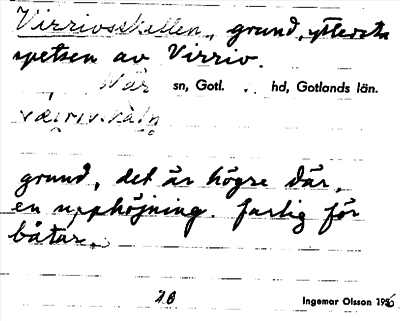 Virrivsskallen, grund, yttersta
spetsen av Virriv.
När sn, Gotl. hd, Gotlands län.
grund, det är högre där,
en upphöjning. farlig för
båtar.
Ingemar Olsson 1956